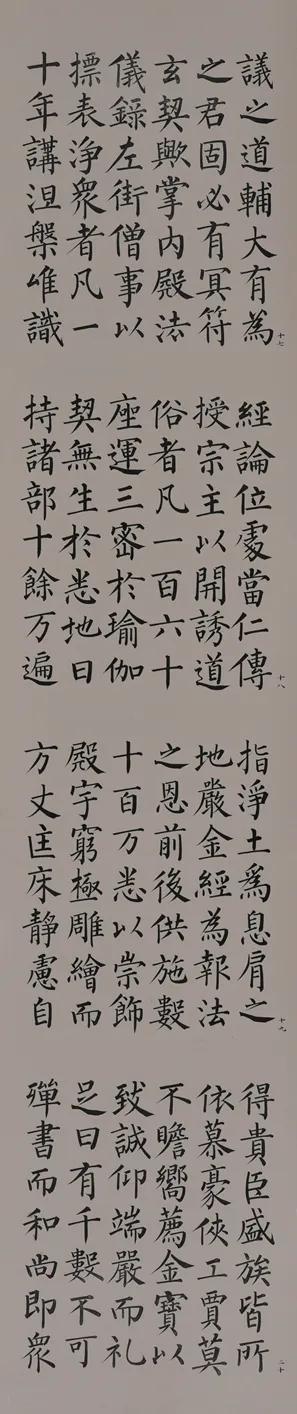 議之道輔大有為
之君固必有冥符
玄契歟掌內殿法
儀錄左街僧事以
摽表淨眾者凡一
十年講涅槃唯識
十七
經論位處當仁傳
授宗主以開誘道
俗者凡一百六十
座運三密於瑜伽
契無生於悉地日
持諸部十餘万遍
十八
指淨土爲息肩之
地嚴金經為報法
之恩前後供施數
十百万悉以崇飾
殿宇窮極雕繪而
方丈匡床靜慮自
十九
得貴臣盛族皆所
依慕豪俠工賈莫
不瞻嚮薦金寶以
致誠仰端嚴而礼
足日有千數不可
殫書而和尚即眾
二十